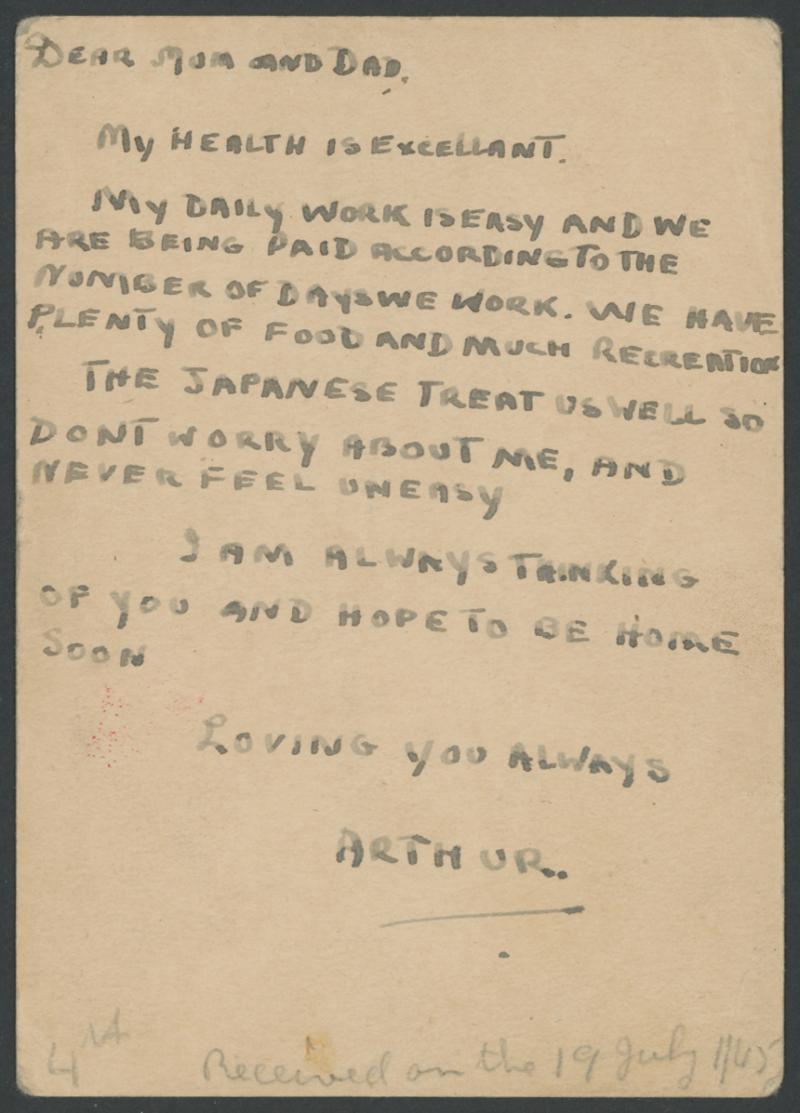 DEAR MUM AND DAD.
MY HEALTH IS EXCELLANT.
MY DAILY WORK IS EASY AND WE
ARE BEING PAID ACCORDING TO THE
NUMBER OF DAYS WE WORK. WE HAVE
PLENTY OF FOOD AND MUCH RECREATION
THE JAPANESE TREAT US WELL SO
DONT WORRY ABOUT ME, AND
NEVER FEEL UNEASY
I AM ALWAYS THINKING
OF YOU AND HOPE TO BE HOME
SOON
LOVING YOU ALWAYS
ARTHUR..
4
Received on the 19 July